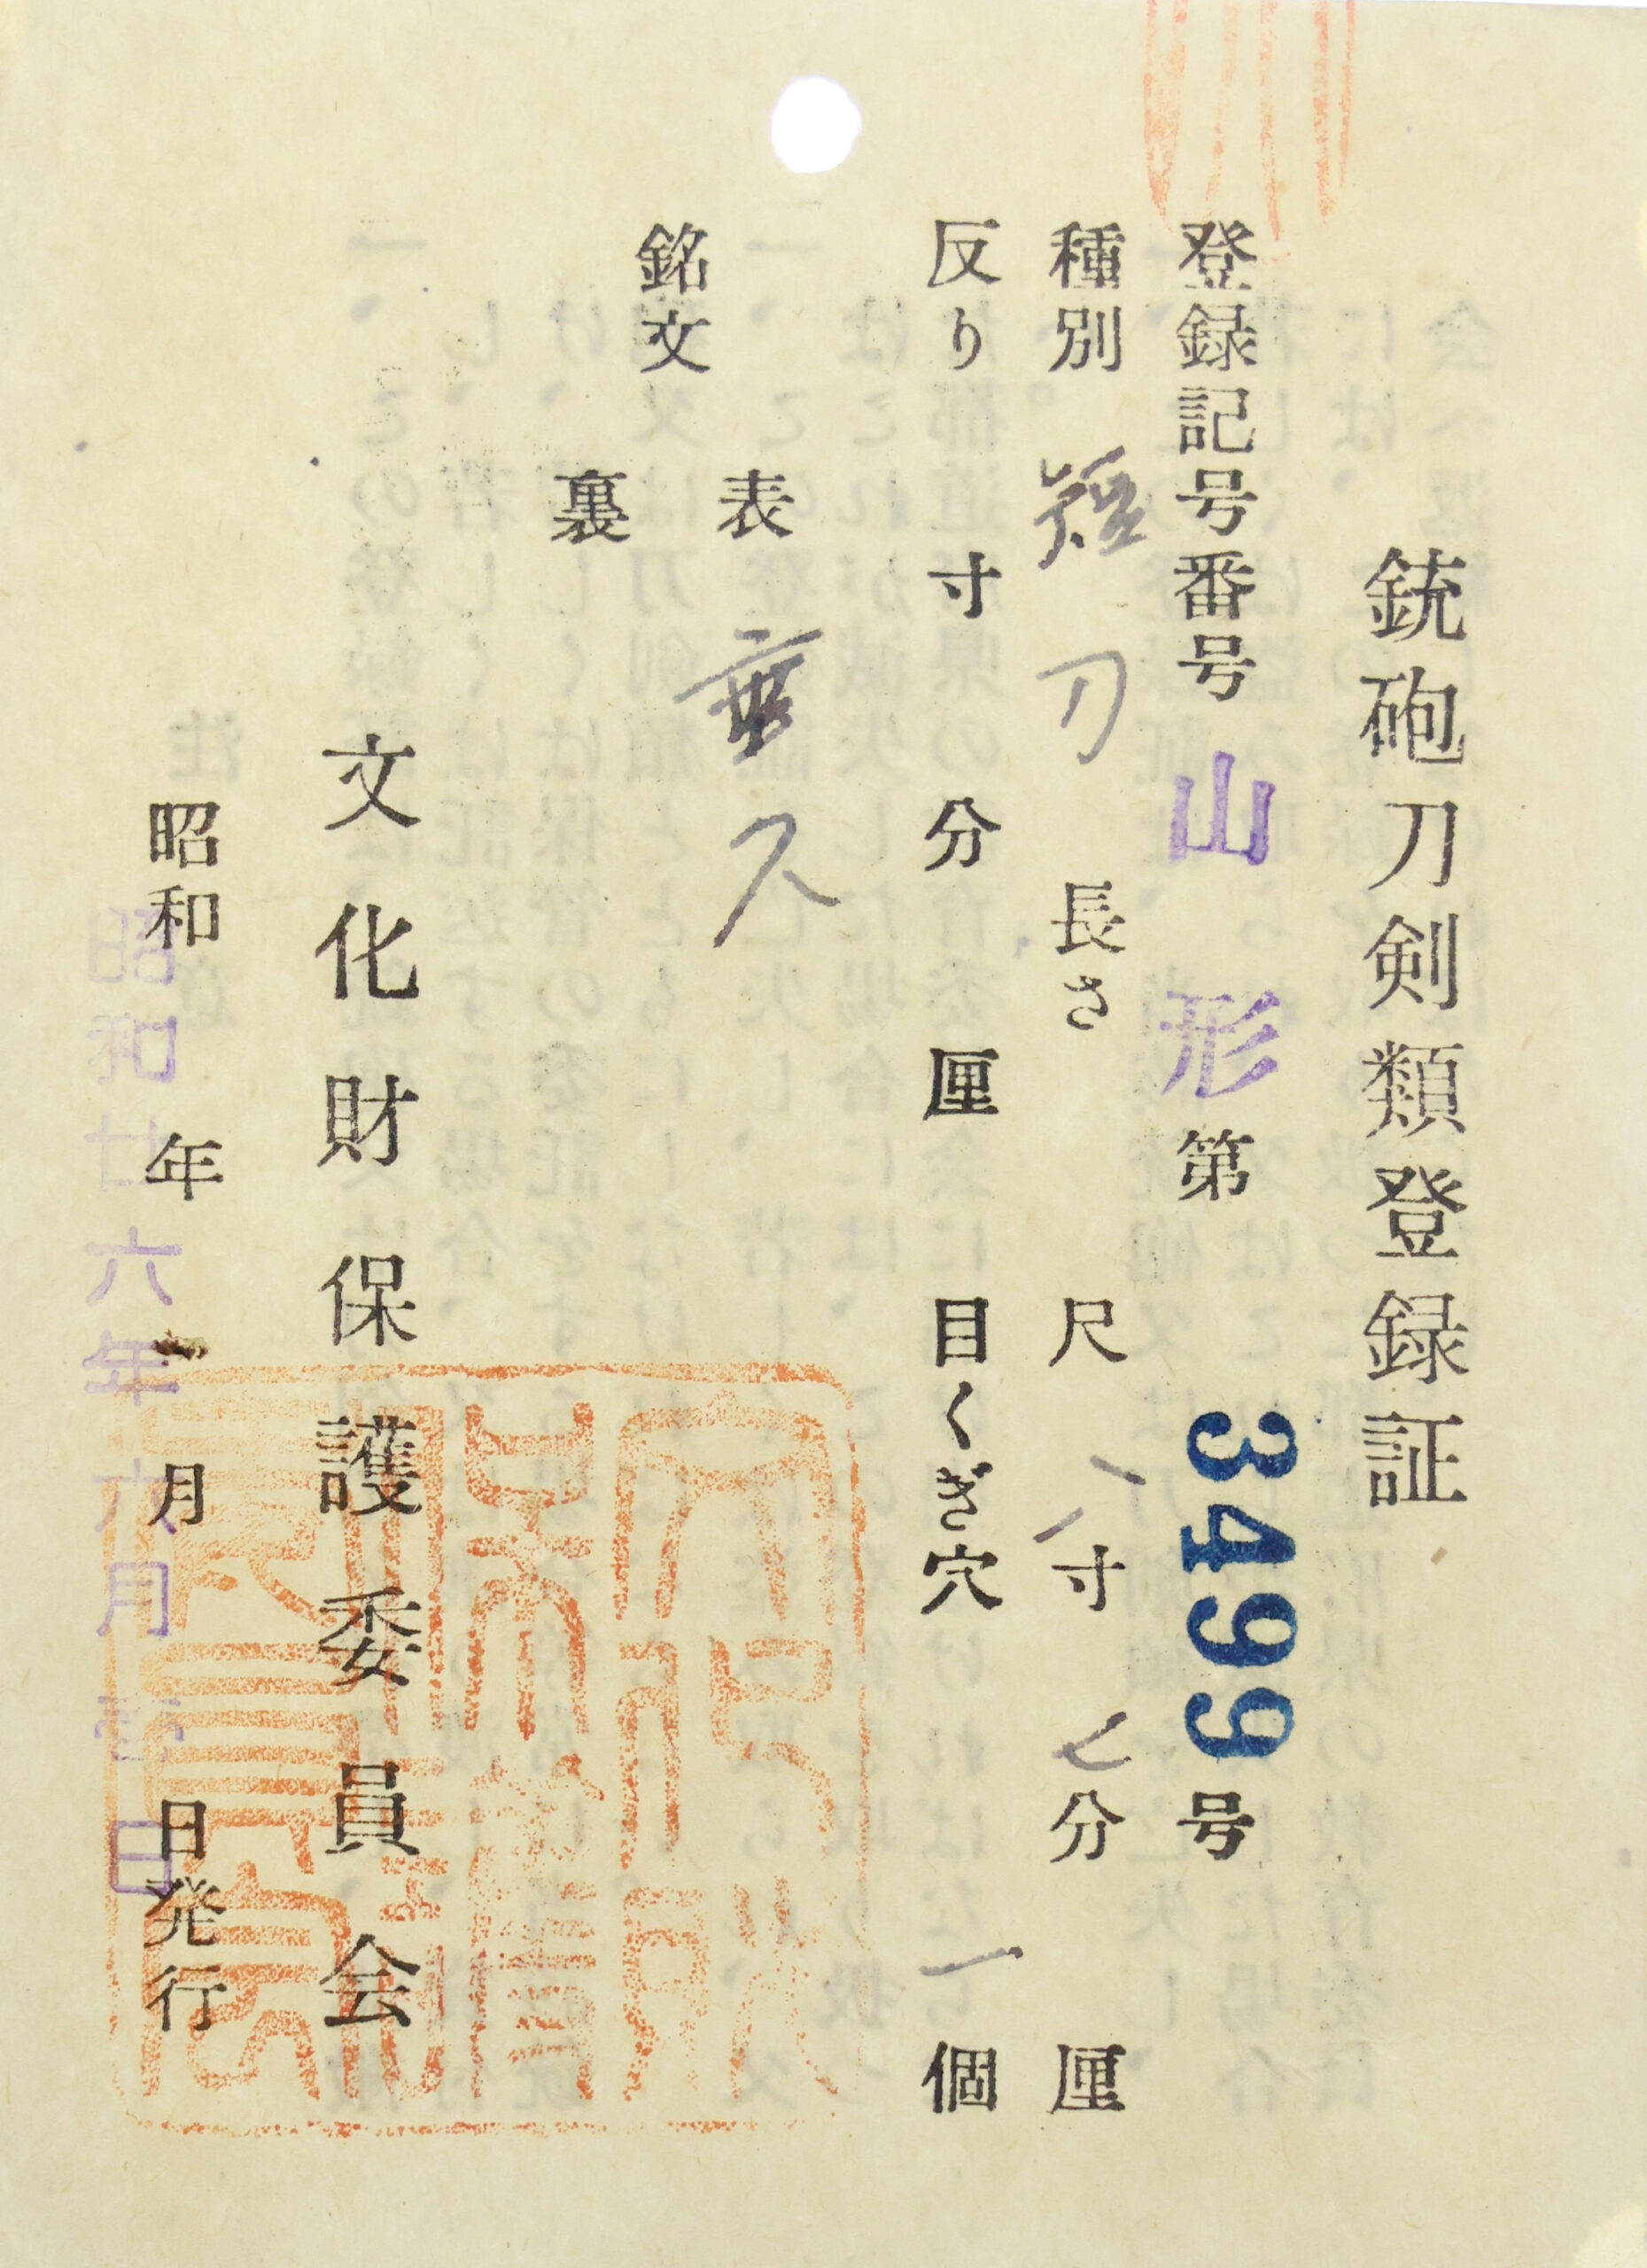 銃砲刀剣類登録証
登録記号番号 山形 第 3499 号
種別 短刀 長さ 尺 八寸 七分 厘
反り 寸 分 厘 目くぎ穴 一 個
銘文
表 兼久
裏
文化財保護委員会
昭和 年 月 日発行
昭和廿六年六月 日